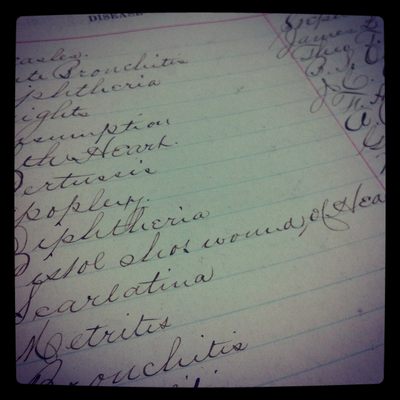 DISEASE
easles.
ute Bronchitis
iphtheria
ights
nsumption
the Heart.
Pertussis
poplexy.
Diphtheria
Pistol shot wound, of Hea
Scarlatina
Metritis
Bronchitis
James